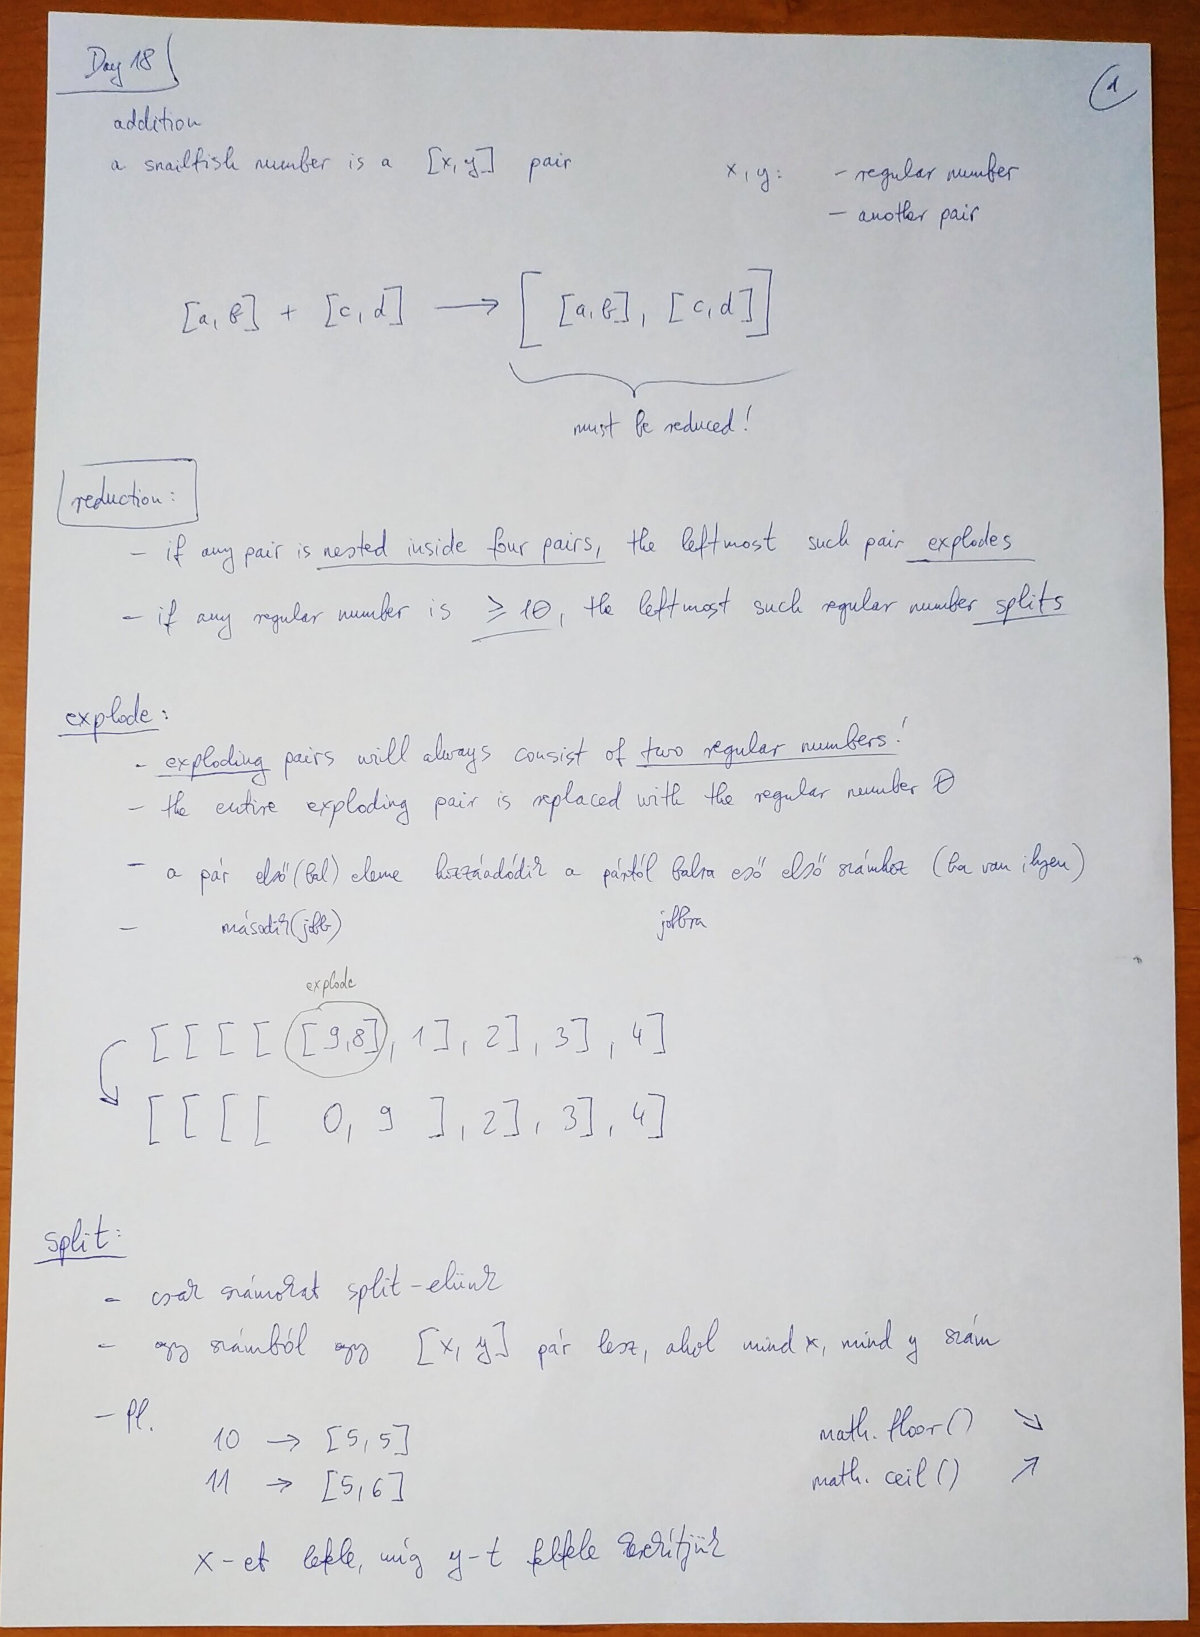 Day 18
1
addition
a snailfish number is a [x,y] pair
x, y: - regular number
- another pair
[a,b] + [c,d] → [ [a,b], [c,d] ]
must be reduced!
reduction:
- if any pair is nested inside four pairs, the leftmost such pair explodes
- if any regular number is ≥ 10, the leftmost such regular number splits
explode:
- exploding pairs will always consist of two regular numbers!
- the entire exploding pair is replaced with the regular number 0
- a pár első (bal) eleme hozzáadódik a pártól balra eső első számhoz (ha van ilyen)
- második (jobb) jobbra
explode
[ [ [ [ [9,8], 1], 2], 3], 4]
[ [ [ [ 0, 9 ], 2], 3], 4]
split:
- csak számokat split-elünk
- egy számból egy [x, y] pár lesz, ahol mind x, mind y szám
- Pl.
10 → [5,5]
11 → [5,6]
math.floor() ↘
math.ceil() ↗
x-et lefele, míg y-t felfele kerekítjük